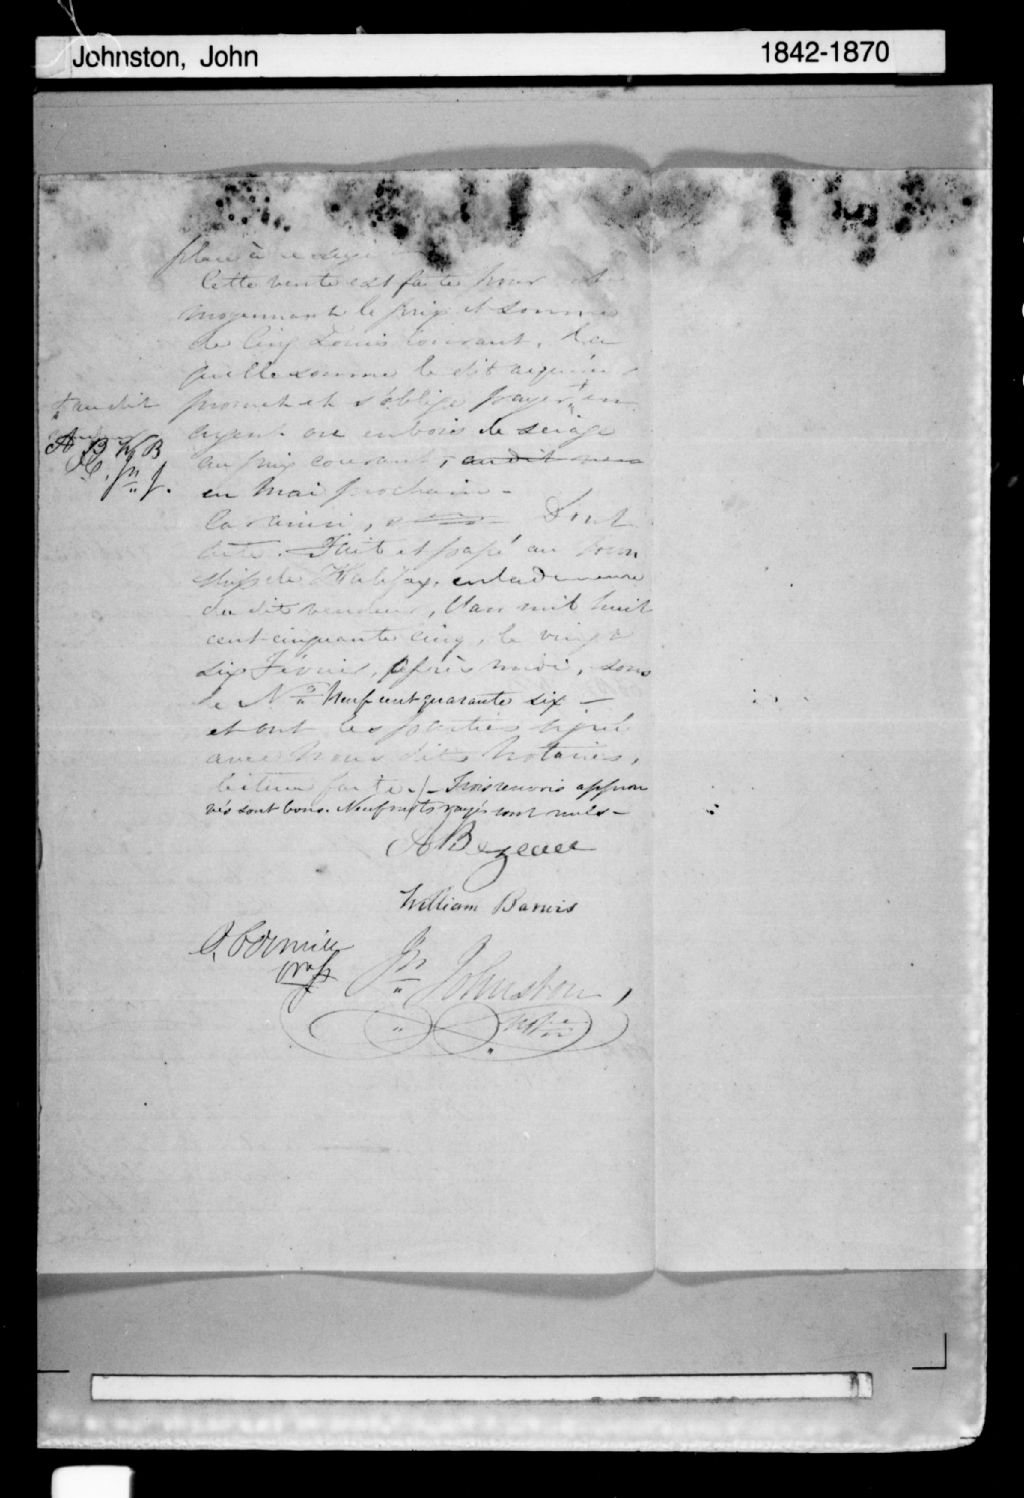 Johnston, John 1842-1870
plait à
Cette vente est faite pour
moyennant le prix et somme
de Cinq Louis Courant, La
quelle somme le dit acquéreur
promet et s'oblige payer † en
† au dit
argent ou en bois de sciage
A B W B
au prix courant, au dit
Jn J.
en Mai prochain -
Car ainsi, Dont
acte. Fait et passé au Town
ship de Halifax, en la demeure
du dit vendeur, l'an mil huit
cent cinquante cinq, le vingt
six Février, après midi, sous
le No Neuf cent quarante six -
et ont les parties signé
avec Nous dits Notaires,
lecture faite ./. Trois renvois approu
vés sont bons. Neuf mots rayés sont nuls -
A Bezeau
William Barwis
Jn Johnston,
Ntre